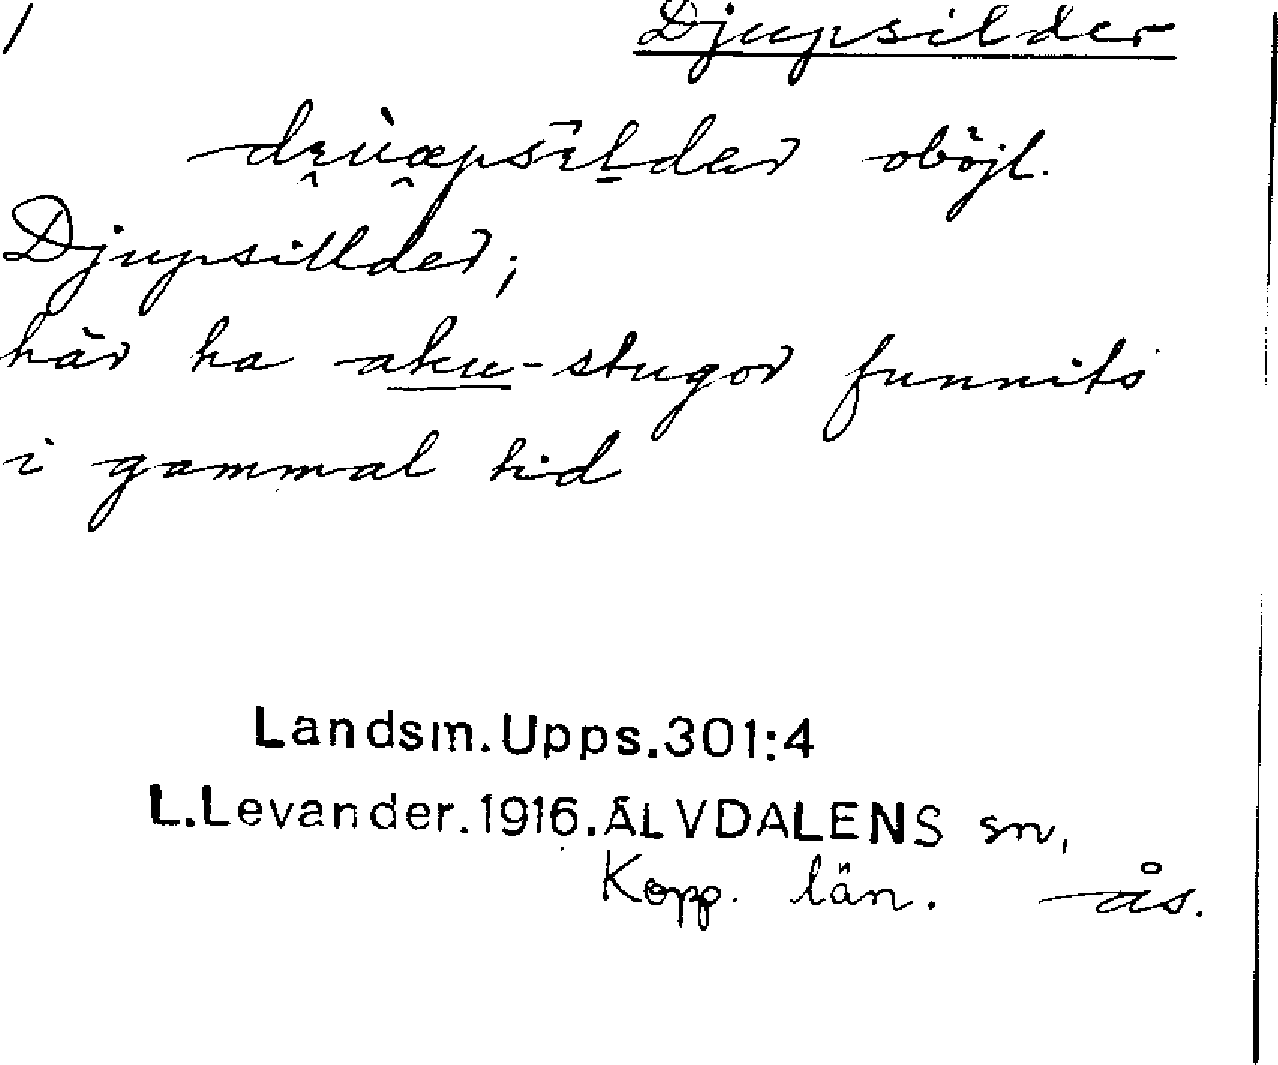 1 Djupsilder
oböjl.
Djupsillder;
här ha aku-stugor funnits
i gammal tid
Landsm.Upps.301:4
L.Levander.1916.ÄLVDALENS sn,
Kopp. län. ås.